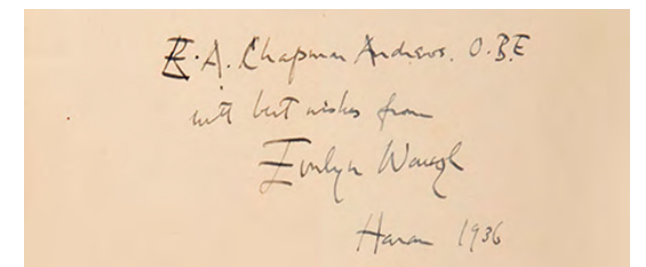 E. A. Chapman Andrews. O.B.E
with best wishes from
Evelyn Waugh
Harar 1936